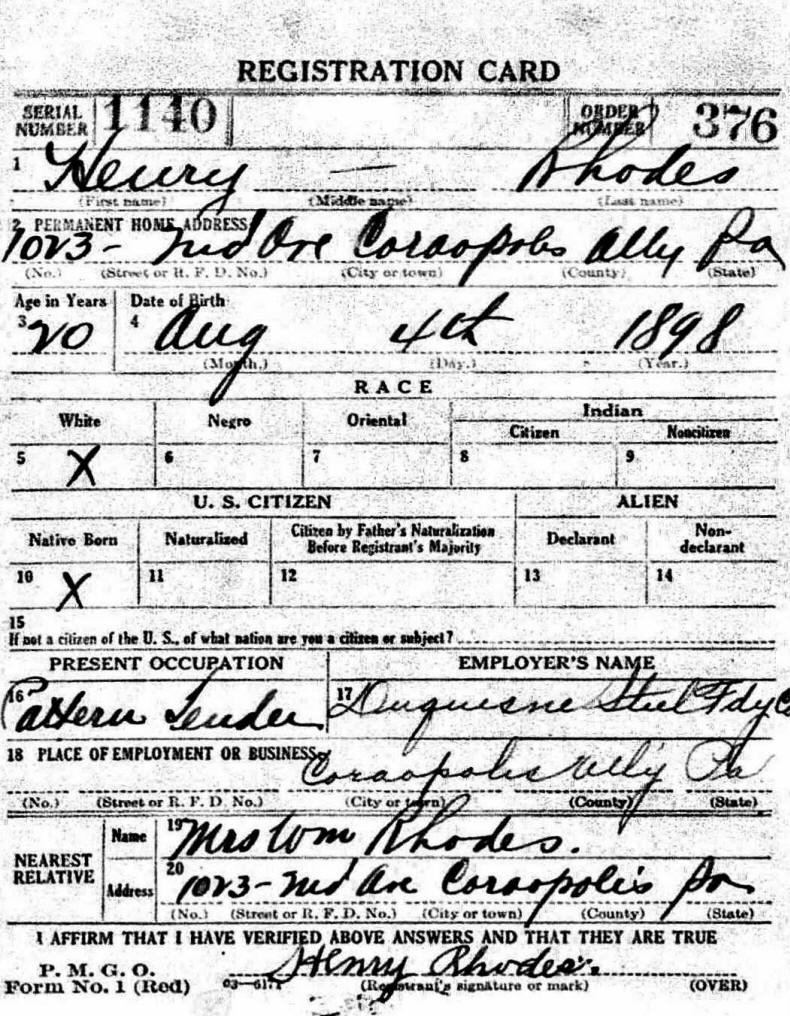 REGISTRATION CARD
SERIAL NUMBER 1140 ORDER NUMBER 376
1 Henry — Rhodes
(First name) (Middle name) (Last name)
2 PERMANENT HOME ADDRESS
1023- Ave Coraopolis Ally Pa
(No.) (Street or R. F. D. No.) (City or town) (County) (State)
Age in Years Date of Birth
3 20 4 Aug 4th 1898
(Month.) (Day.) (Year.)
RACE
White Negro Oriental Indian
Citizen Noncitizen
5 X 6 7 8 9
U. S. CITIZEN ALIEN
Native Born Naturalized Citizen by Father's Naturalization Before Registrant's Majority Declarant Non-declarant
10 X 11 12 13 14
15
If not a citizen of the U. S., of what nation are you a citizen or subject?
PRESENT OCCUPATION EMPLOYER'S NAME
16 Pattern Tender 17 Duquesne Steel Fdy Co
18 PLACE OF EMPLOYMENT OR BUSINESS
Coraopolis Ally Pa
(No.) (Street or R. F. D. No.) (City or town) (County) (State)
NEAREST RELATIVE
Name 19 Mrs Wm Rhodes.
Address 20 1023- Ave Coraopolis Pa
(No.) (Street or R. F. D. No.) (City or town) (County) (State)
I AFFIRM THAT I HAVE VERIFIED ABOVE ANSWERS AND THAT THEY ARE TRUE
P. M. G. O.
Form No. 1 (Red) Henry Rhodes.
(Registrant's signature or mark) (OVER)